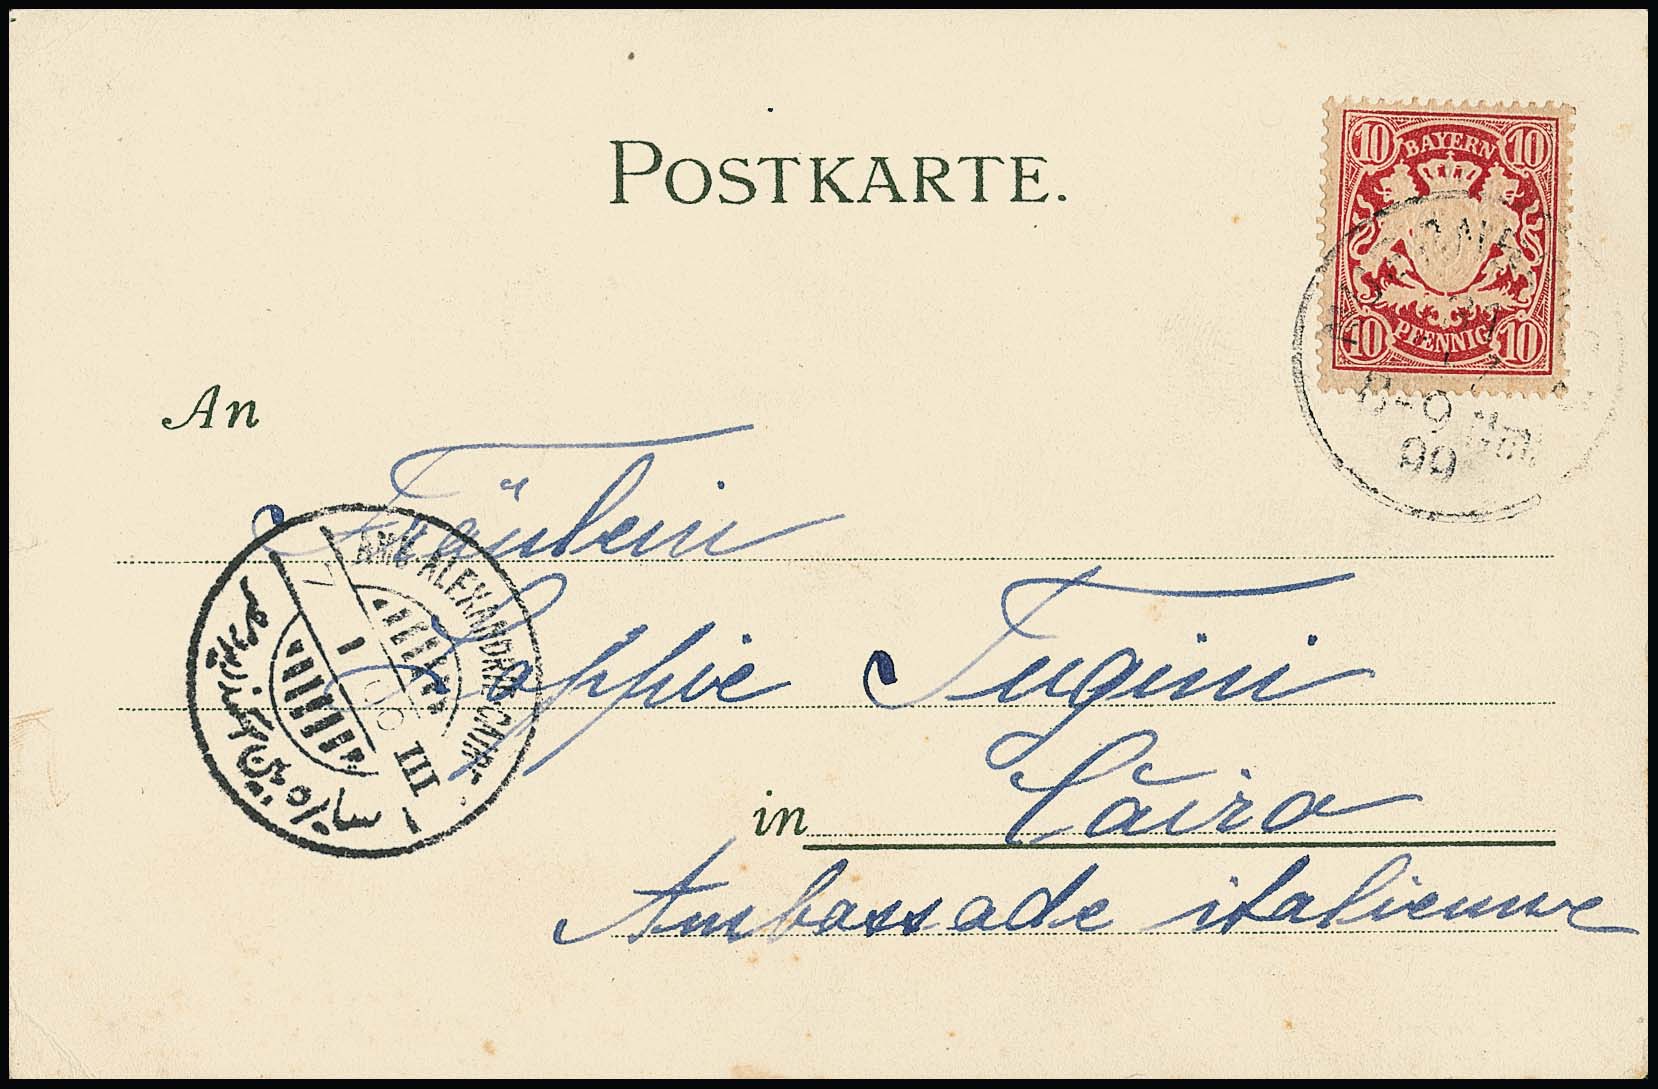 POSTKARTE.
10 BAYERN 10
10 PFENNIG 10
31
8-9 Nm.
99
An
Fräulein
Sophie Tugini
in Cairo
Ambassade italienne
AMB ALEXANDRIE-CAIRE
III